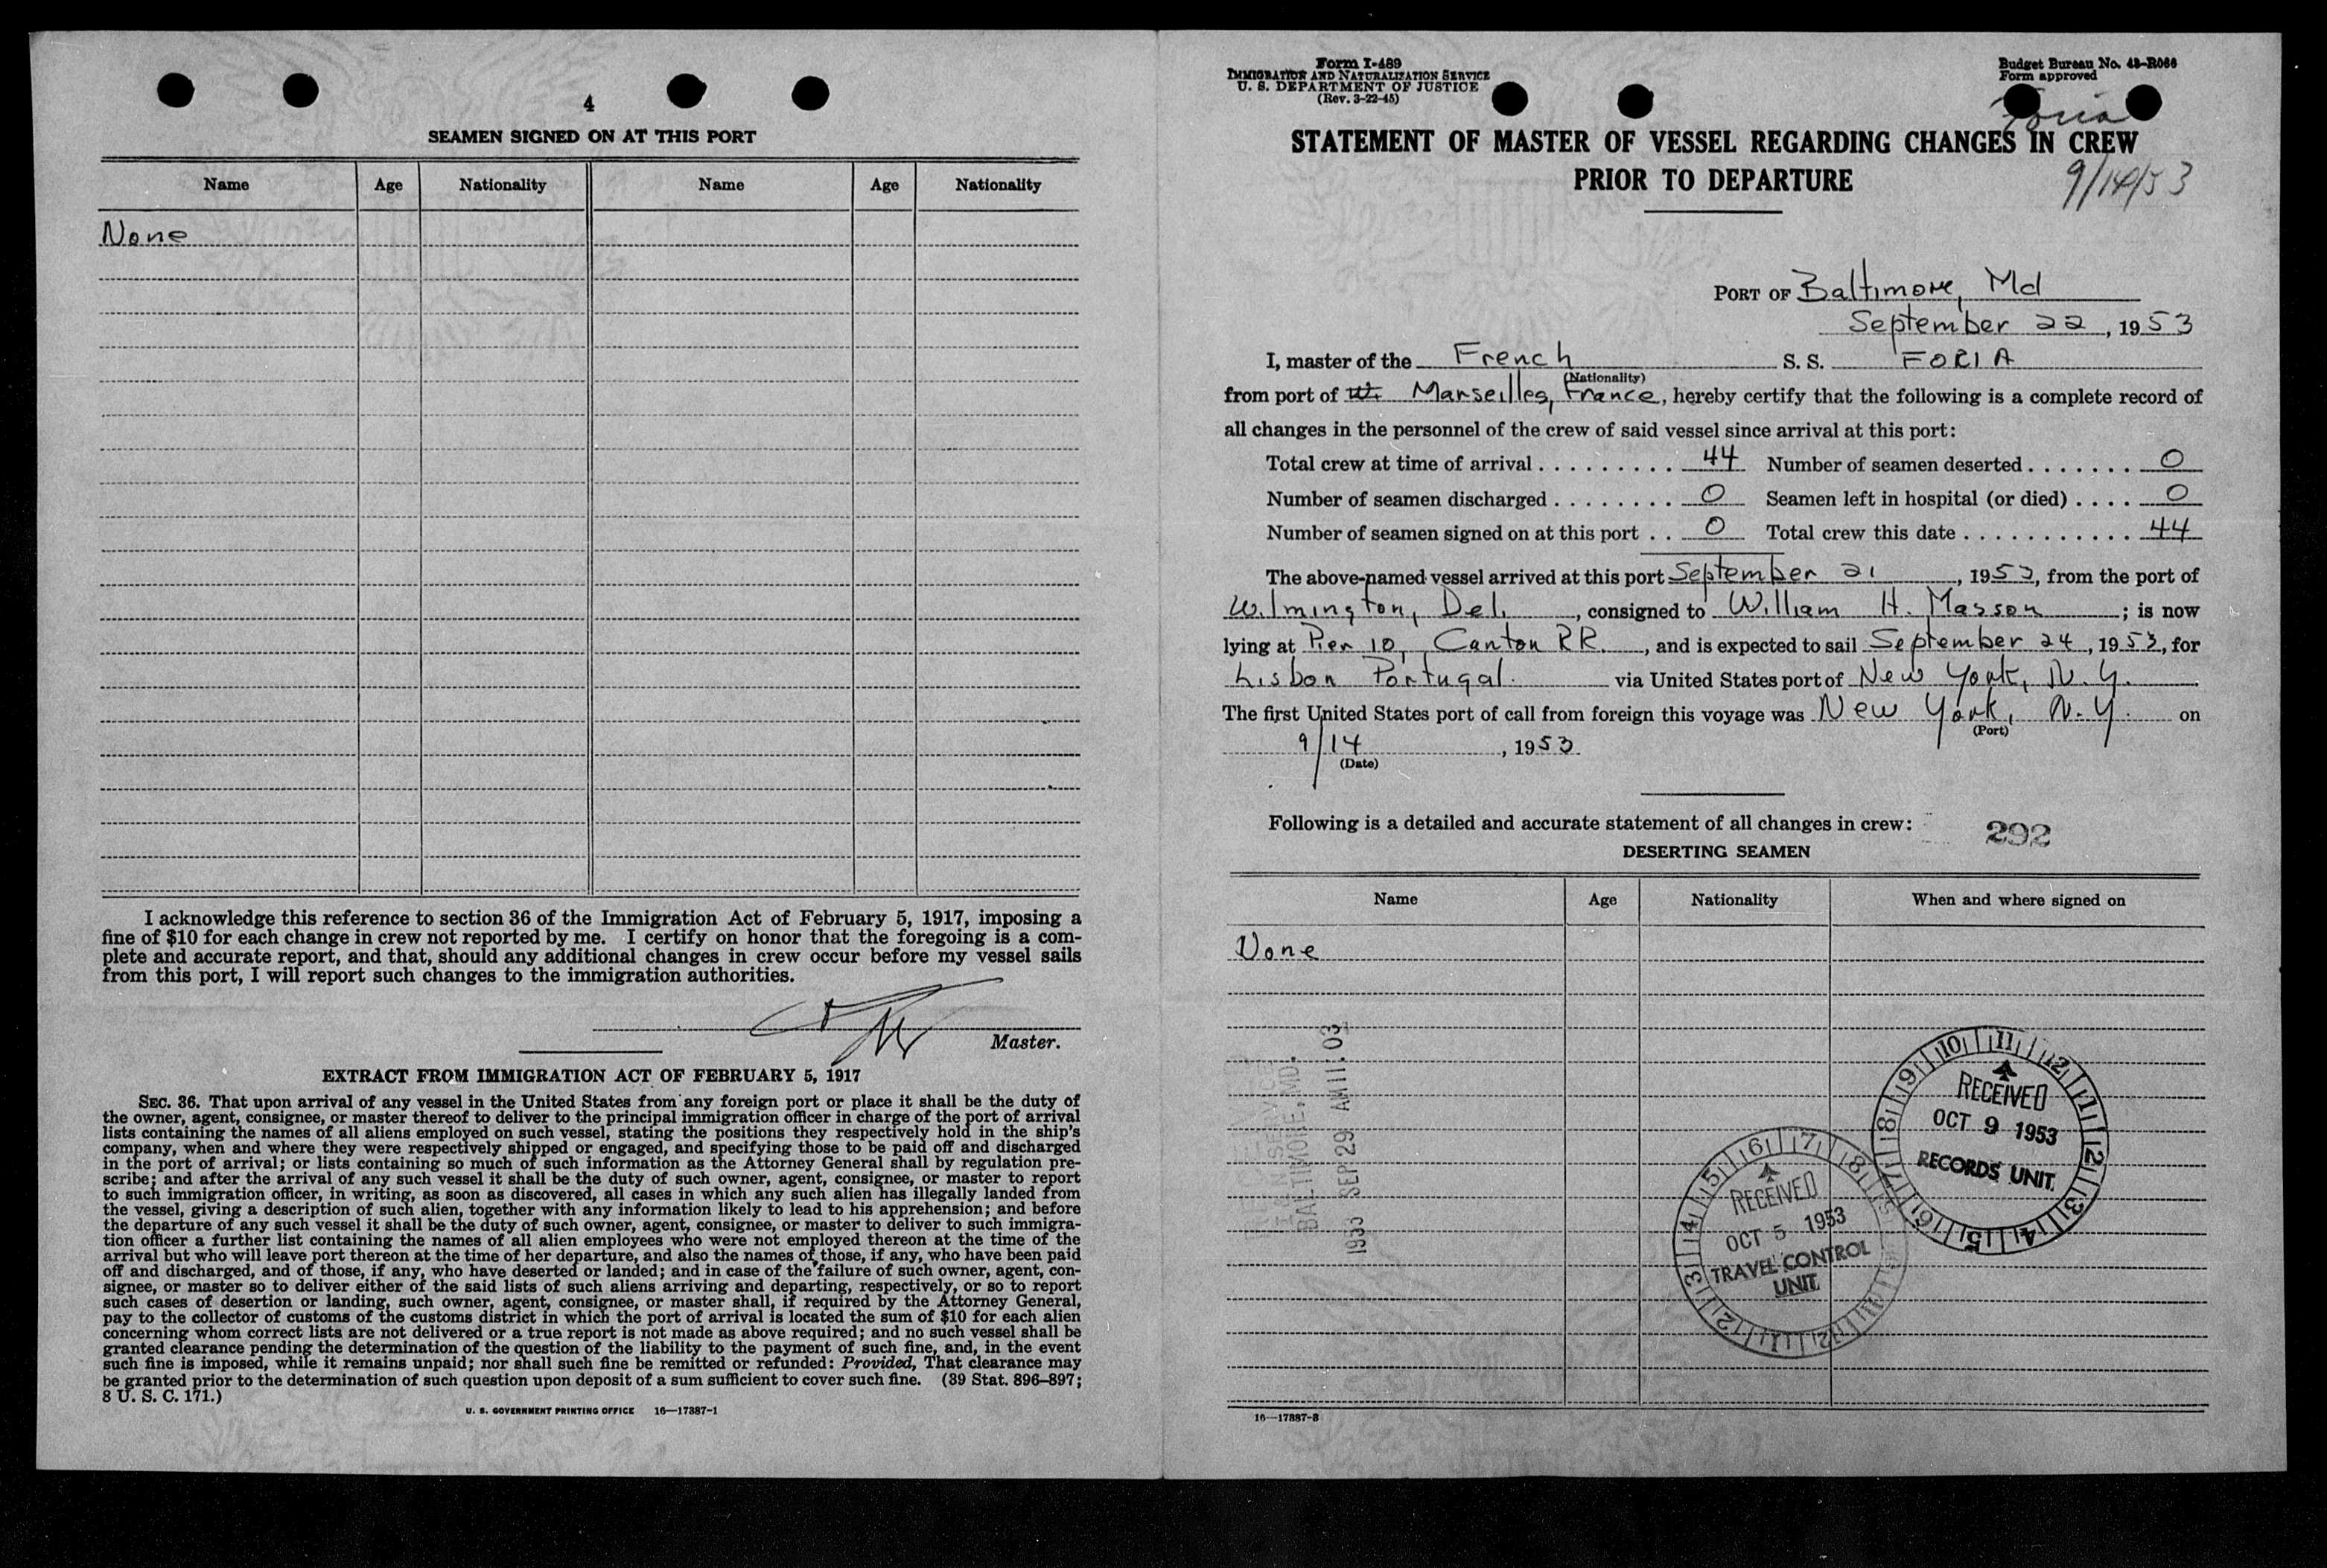 4
SEAMEN SIGNED ON AT THIS PORT
Name Age Nationality Name Age Nationality
None
I acknowledge this reference to section 36 of the Immigration Act of February 5, 1917, imposing a
fine of $10 for each change in crew not reported by me. I certify on honor that the foregoing is a com-
plete and accurate report, and that, should any additional changes in crew occur before my vessel sails
from this port, I will report such changes to the immigration authorities.
Master.
EXTRACT FROM IMMIGRATION ACT OF FEBRUARY 5, 1917
SEC. 36. That upon arrival of any vessel in the United States from any foreign port or place it shall be the duty of
the owner, agent, consignee, or master thereof to deliver to the principal immigration officer in charge of the port of arrival
lists containing the names of all aliens employed on such vessel, stating the positions they respectively hold in the ship's
company, when and where they were respectively shipped or engaged, and specifying those to be paid off and discharged
in the port of arrival; or lists containing so much of such information as the Attorney General shall by regulation pre-
scribe; and after the arrival of any such vessel it shall be the duty of such owner, agent, consignee, or master to report
to such immigration officer, in writing, as soon as discovered, all cases in which any such alien has illegally landed from
the vessel, giving a description of such alien, together with any information likely to lead to his apprehension; and before
the departure of any such vessel it shall be the duty of such owner, agent, consignee, or master to deliver to such immigra-
tion officer a further list containing the names of all alien employees who were not employed thereon at the time of the
arrival but who will leave port thereon at the time of her departure, and also the names of those, if any, who have been paid
off and discharged, and of those, if any, who have deserted or landed; and in case of the failure of such owner, agent, con-
signee, or master so to deliver either of the said lists of such aliens arriving and departing, respectively, or so to report
such cases of desertion or landing, such owner, agent, consignee, or master shall, if required by the Attorney General,
pay to the collector of customs of the customs district in which the port of arrival is located the sum of $10 for each alien
concerning whom correct lists are not delivered or a true report is not made as above required; and no such vessel shall be
granted clearance pending the determination of the question of the liability to the payment of such fine, and, in the event
such fine is imposed, while it remains unpaid; nor shall such fine be remitted or refunded: Provided, That clearance may
be granted prior to the determination of such question upon deposit of a sum sufficient to cover such fine. (39 Stat. 896–897;
8 U. S. C. 171.)
U. S. GOVERNMENT PRINTING OFFICE 16—17887-1
Form I-489
IMMIGRATION AND NATURALIZATION SERVICE
U. S. DEPARTMENT OF JUSTICE
(Rev. 3-22-45)
Budget Bureau No. 43-R066
Form approved
Foria
STATEMENT OF MASTER OF VESSEL REGARDING CHANGES IN CREW
PRIOR TO DEPARTURE
9/14/53
PORT OF Baltimore, Md
September 22, 1953
I, master of the French S. S. FORIA
(Nationality)
from port of Marseilles, France, hereby certify that the following is a complete record of
all changes in the personnel of the crew of said vessel since arrival at this port:
Total crew at time of arrival . . . . . . . . . 44 Number of seamen deserted . . . . . . . 0
Number of seamen discharged . . . . . . . . 0 Seamen left in hospital (or died) . . . . 0
Number of seamen signed on at this port . . 0 Total crew this date . . . . . . . . . . . 44
The above-named vessel arrived at this port September 21, 1953, from the port of
Wilmington, Del., consigned to William H. Masson; is now
lying at Pier 10, Canton RR., and is expected to sail September 24, 1953, for
Lisbon Portugal. via United States port of New York, N.Y.
The first United States port of call from foreign this voyage was New York, N.Y. on
(Port)
9/14, 1953
(Date)
Following is a detailed and accurate statement of all changes in crew:
292
DESERTING SEAMEN
Name Age Nationality When and where signed on
None
BALTIMORE, MD.
1953 SEP 29 AM 11:03
RECEIVED
OCT 9 1953
RECORDS UNIT.
RECEIVED
OCT 5 1953
TRAVEL CONTROL
UNIT.
16—17887-3